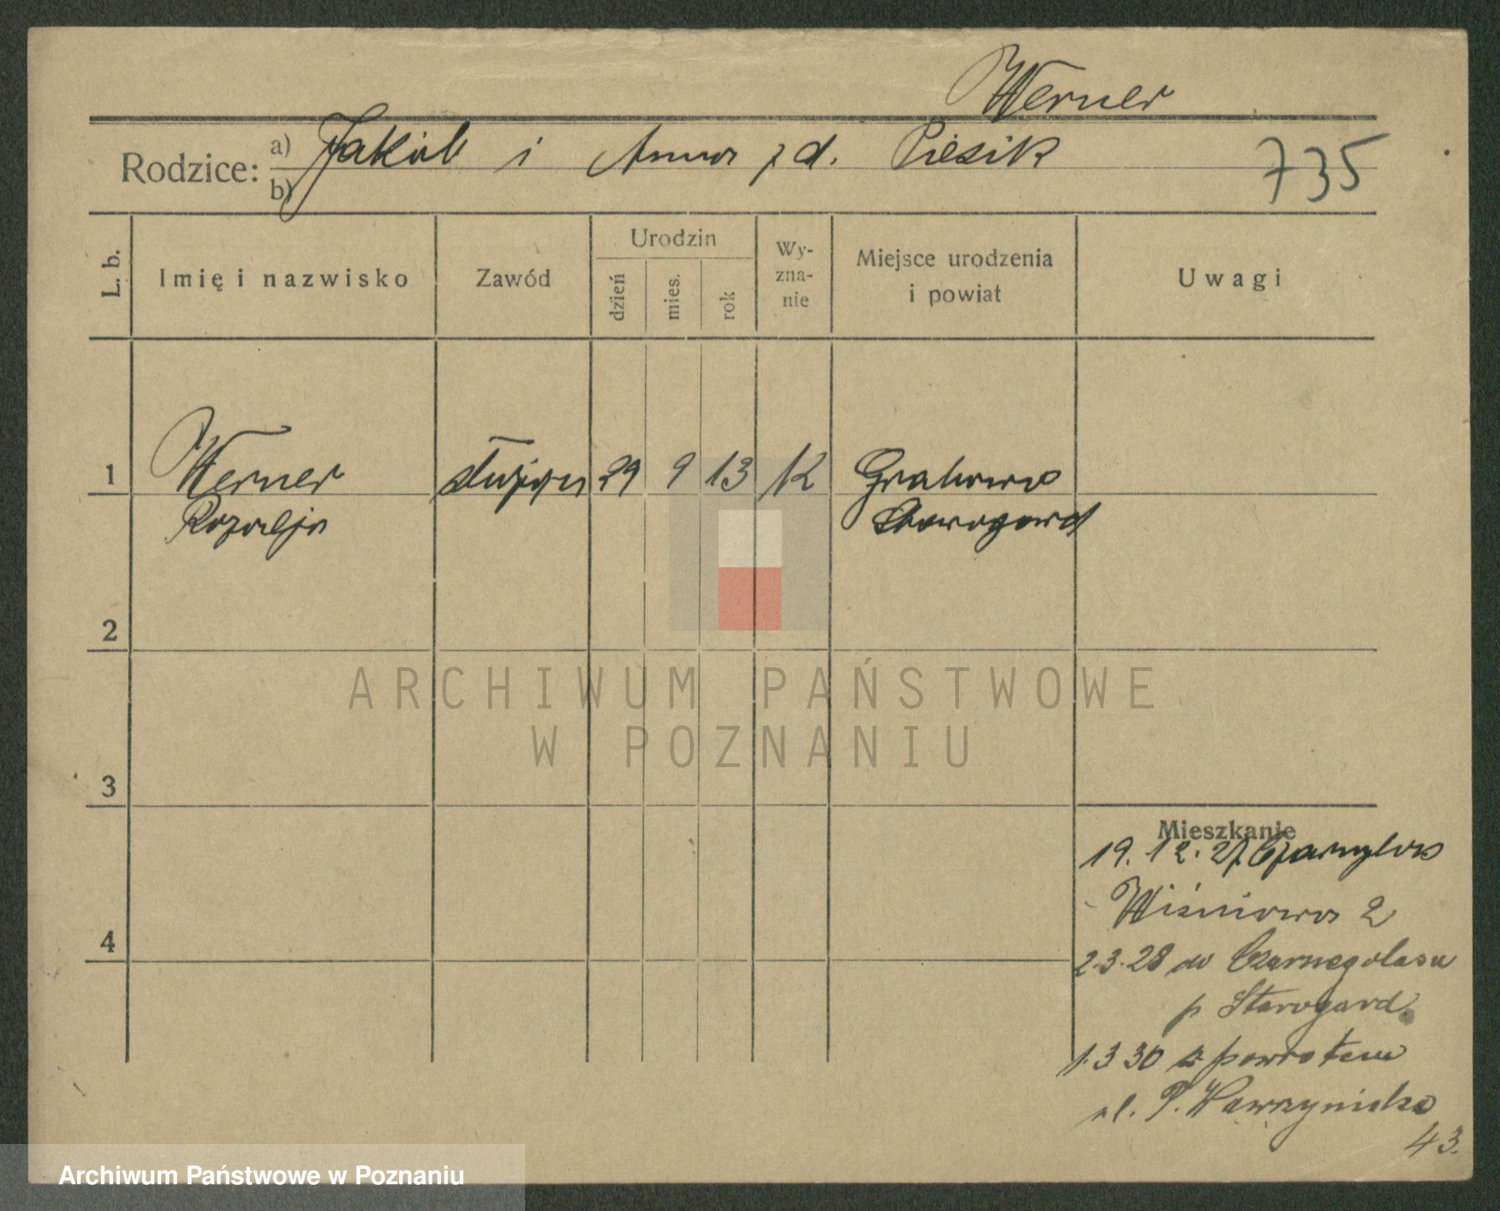 Werner
Rodzice: a) Jakób i Anna z d. Piesik
b)
735
L. b.
Imię i nazwisko
Zawód
Urodzin
dzień
mies.
rok
Wy-
zna-
nie
Miejsce urodzenia
i powiat
Uwagi
1 Werner służąca 29 9 13 K Grabowo
Rozalja Starogard
2
ARCHIWUM PAŃSTWOWE
W POZNANIU
3
Mieszkanie
19. 12. 27.
Wiśniowa 2
4
2.3.28 do Czarnegolasu
p Starogard
1.3 30 z powrotem
ul. P. Wawrzyniaka
43.
Archiwum Państwowe w Poznaniu